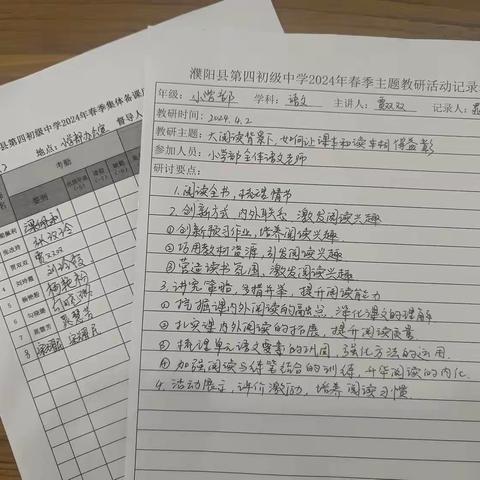 濮阳县第四初级中学2024年春季主题教研活动记录
年级: 小学部 学科: 语文 主讲人: 贾双双 记录人:
教研时间: 2024.4.2
教研主题: 大阅读背景下,如何让课本和读本相得益彰
参加人员: 小学部全体语文老师
研讨要点:
1.阅读全书,梳理情节
2.创新方式 内外联系 激发阅读兴趣
①创新预习作业,培养阅读兴趣
②巧用教材资源,引发阅读兴趣
③营造读书氛围,激发阅读兴趣
3.讲究策略,多措并举,提升阅读能力
① 挖掘课内外阅读的融合点,深化课文的理解
② 扎实课内外阅读的拓展,提升阅读质量
③ 搭建单元语文要素的巩固,强化方法的运用.
④ 加强阅读与练笔结合的训练,升华阅读的内化.
4.活动展示,评价激励,培养阅读习惯.
县第四初级中学2024年春季集体备课
地点: 督导人
考勤
签到
贾双双
刘玲霞
杨艳粉
勾晓璐
8